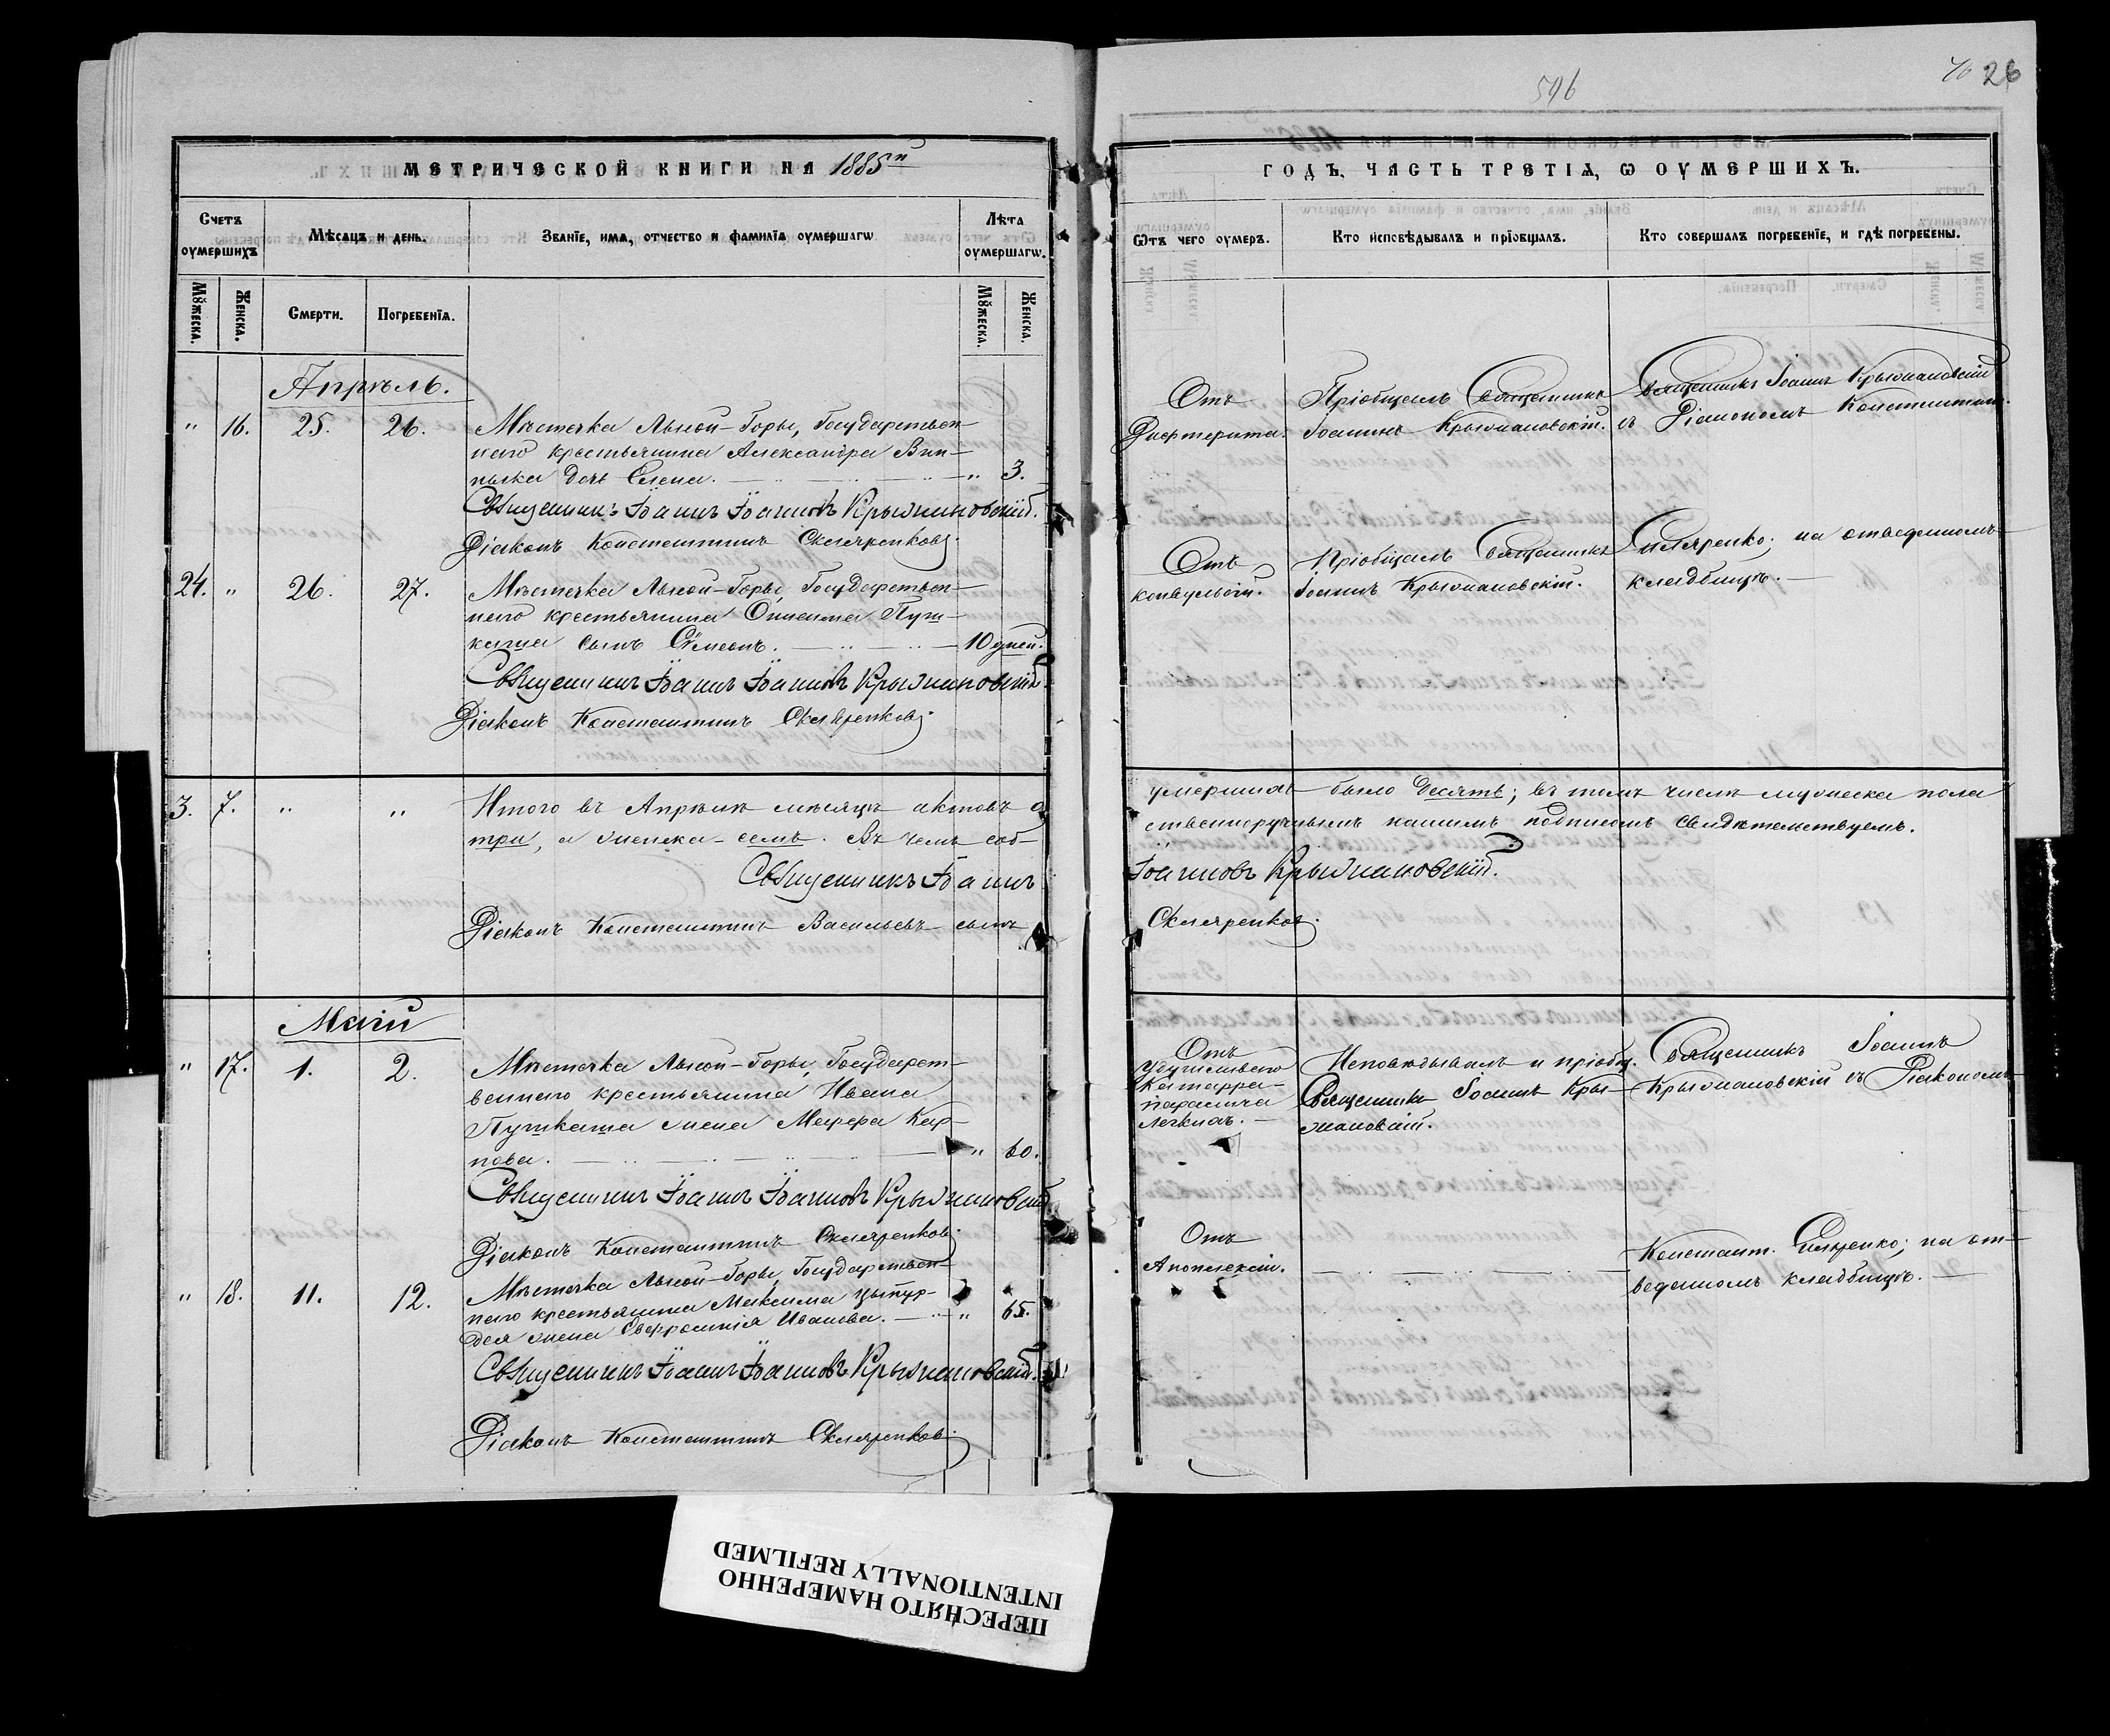 596
26
МЕТРИЧЕСКОЙ КНИГИ НА 1885й
Счетъ оумершихъ
Мѣсяцъ и день.
Званіе, имя, отчество и фамилія оумершагѡ
Лѣта оумершагѡ.
Мꙋжеска.
Женска.
Смерти.
Погребенія.
Мꙋжеска.
Женска.
Апрѣль.
" 16. 25. 26. Мѣстечка Лысой-Горы, Государствен-
наго крестьянина Александра Вин-
ника дочь Елена. " 3.
Священникъ Іоаннъ Іоанновъ Крыжановскій.
Діаконъ Константинъ Скляренковъ.
24. " 26. 27. Мѣстечка Лысой-Горы, Государствен-
наго крестьянина Онисима Пуш-
каша сынъ Сѵмеонъ. 10 дней.
Священникъ Іоаннъ Іоанновъ Крыжановскій.
Діаконъ Константинъ Скляренковъ.
3. 7. " " Итого въ Апрѣлѣ мѣсяцѣ актовъ о
три, а женска - семь. Въ чемъ соб-
Священникъ Іоаннъ
Діаконъ Константинъ Васильевъ сынъ
Маій
" 17. 1. 2. Мѣстечка Лысой-Горы, Государст-
веннаго крестьянина Ивана
Пушкаша жена Марфа Кар-
пова. " 60.
Священникъ Іоаннъ Іоанновъ Крыжановскій
Діаконъ Константинъ Скляренковъ.
" 18. 11. 12. Мѣстечка Лысой-Горы, Государствен-
наго крестьянина Максима
жена Евфросинія Иванова. " 65.
Священникъ Іоаннъ Іоанновъ Крыжановскій.
Діаконъ Константинъ Скляренковъ.
ГОДЪ, ЧАСТЬ ТРЕТІЯ, Ѡ ОУМЕРШИХЪ.
Ѿтъ чего оумеръ.
Кто исповѣдывалъ и пріобщалъ.
Кто совершалъ погребеніе, и гдѣ погребены.
Отъ
Дифтерита.
Пріобщалъ Священникъ
Іоаннъ Крыжановскій.
Священникъ Іоаннъ Крыжановскій
съ Діакономъ Константин.
Отъ
конвульсій.
Пріобщалъ Священникъ
Іоаннъ Крыжановскій.
Скляренко; на отведенномъ
кладбищѣ.
умершихъ было десять; въ томъ числѣ мужеска пола
ственноручнымъ нашимъ подписомъ свидѣтельствуемъ.
Іоанновъ Крыжановскій.
Скляренковъ.
Отъ
Катарра-
паралича
легкихъ.
Исповѣдывалъ и пріобщ.
Священникъ Іоаннъ Кры-
жановскій.
Священникъ Іоаннъ
Крыжановскій съ Діакономъ
Отъ
Апоплексіи.
Констант. Скляренко; на от-
веденномъ кладбищѣ.
ПЕРЕСНЯТО НАМЕРЕННО
INTENTIONALLY REFILMED